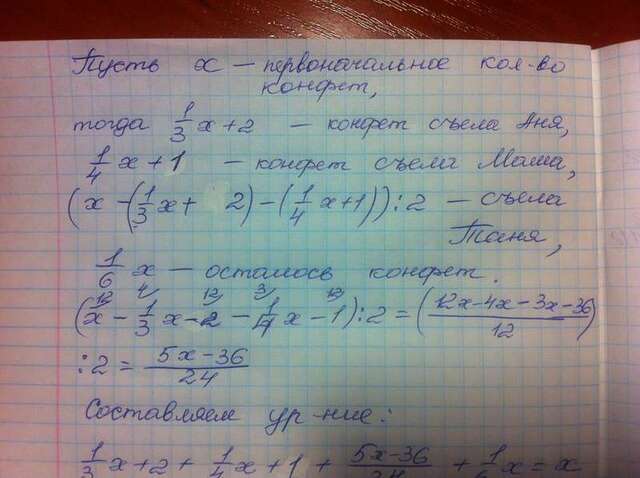 Пусть x – первоначальное кол-во
конфет,
тогда 1/3 x + 2 – конфет съела Аня,
1/4 x + 1 – конфет съела Маша,
(x – (1/3 x + 2) – (1/4 x + 1)) : 2 – съела
Таня,
1/6 x – осталось конфет.
12/ 4/ 12/ 3/ 12/
(x – 1/3 x – 2 – 1/4 x – 1) : 2 = ((12x – 4x – 3x – 36)/12)
: 2 = (5x – 36)/24
Составляем ур-ние:
1/3 x + 2 + 1/4 x + 1 + (5x – 36)/24 + 1/6 x = x